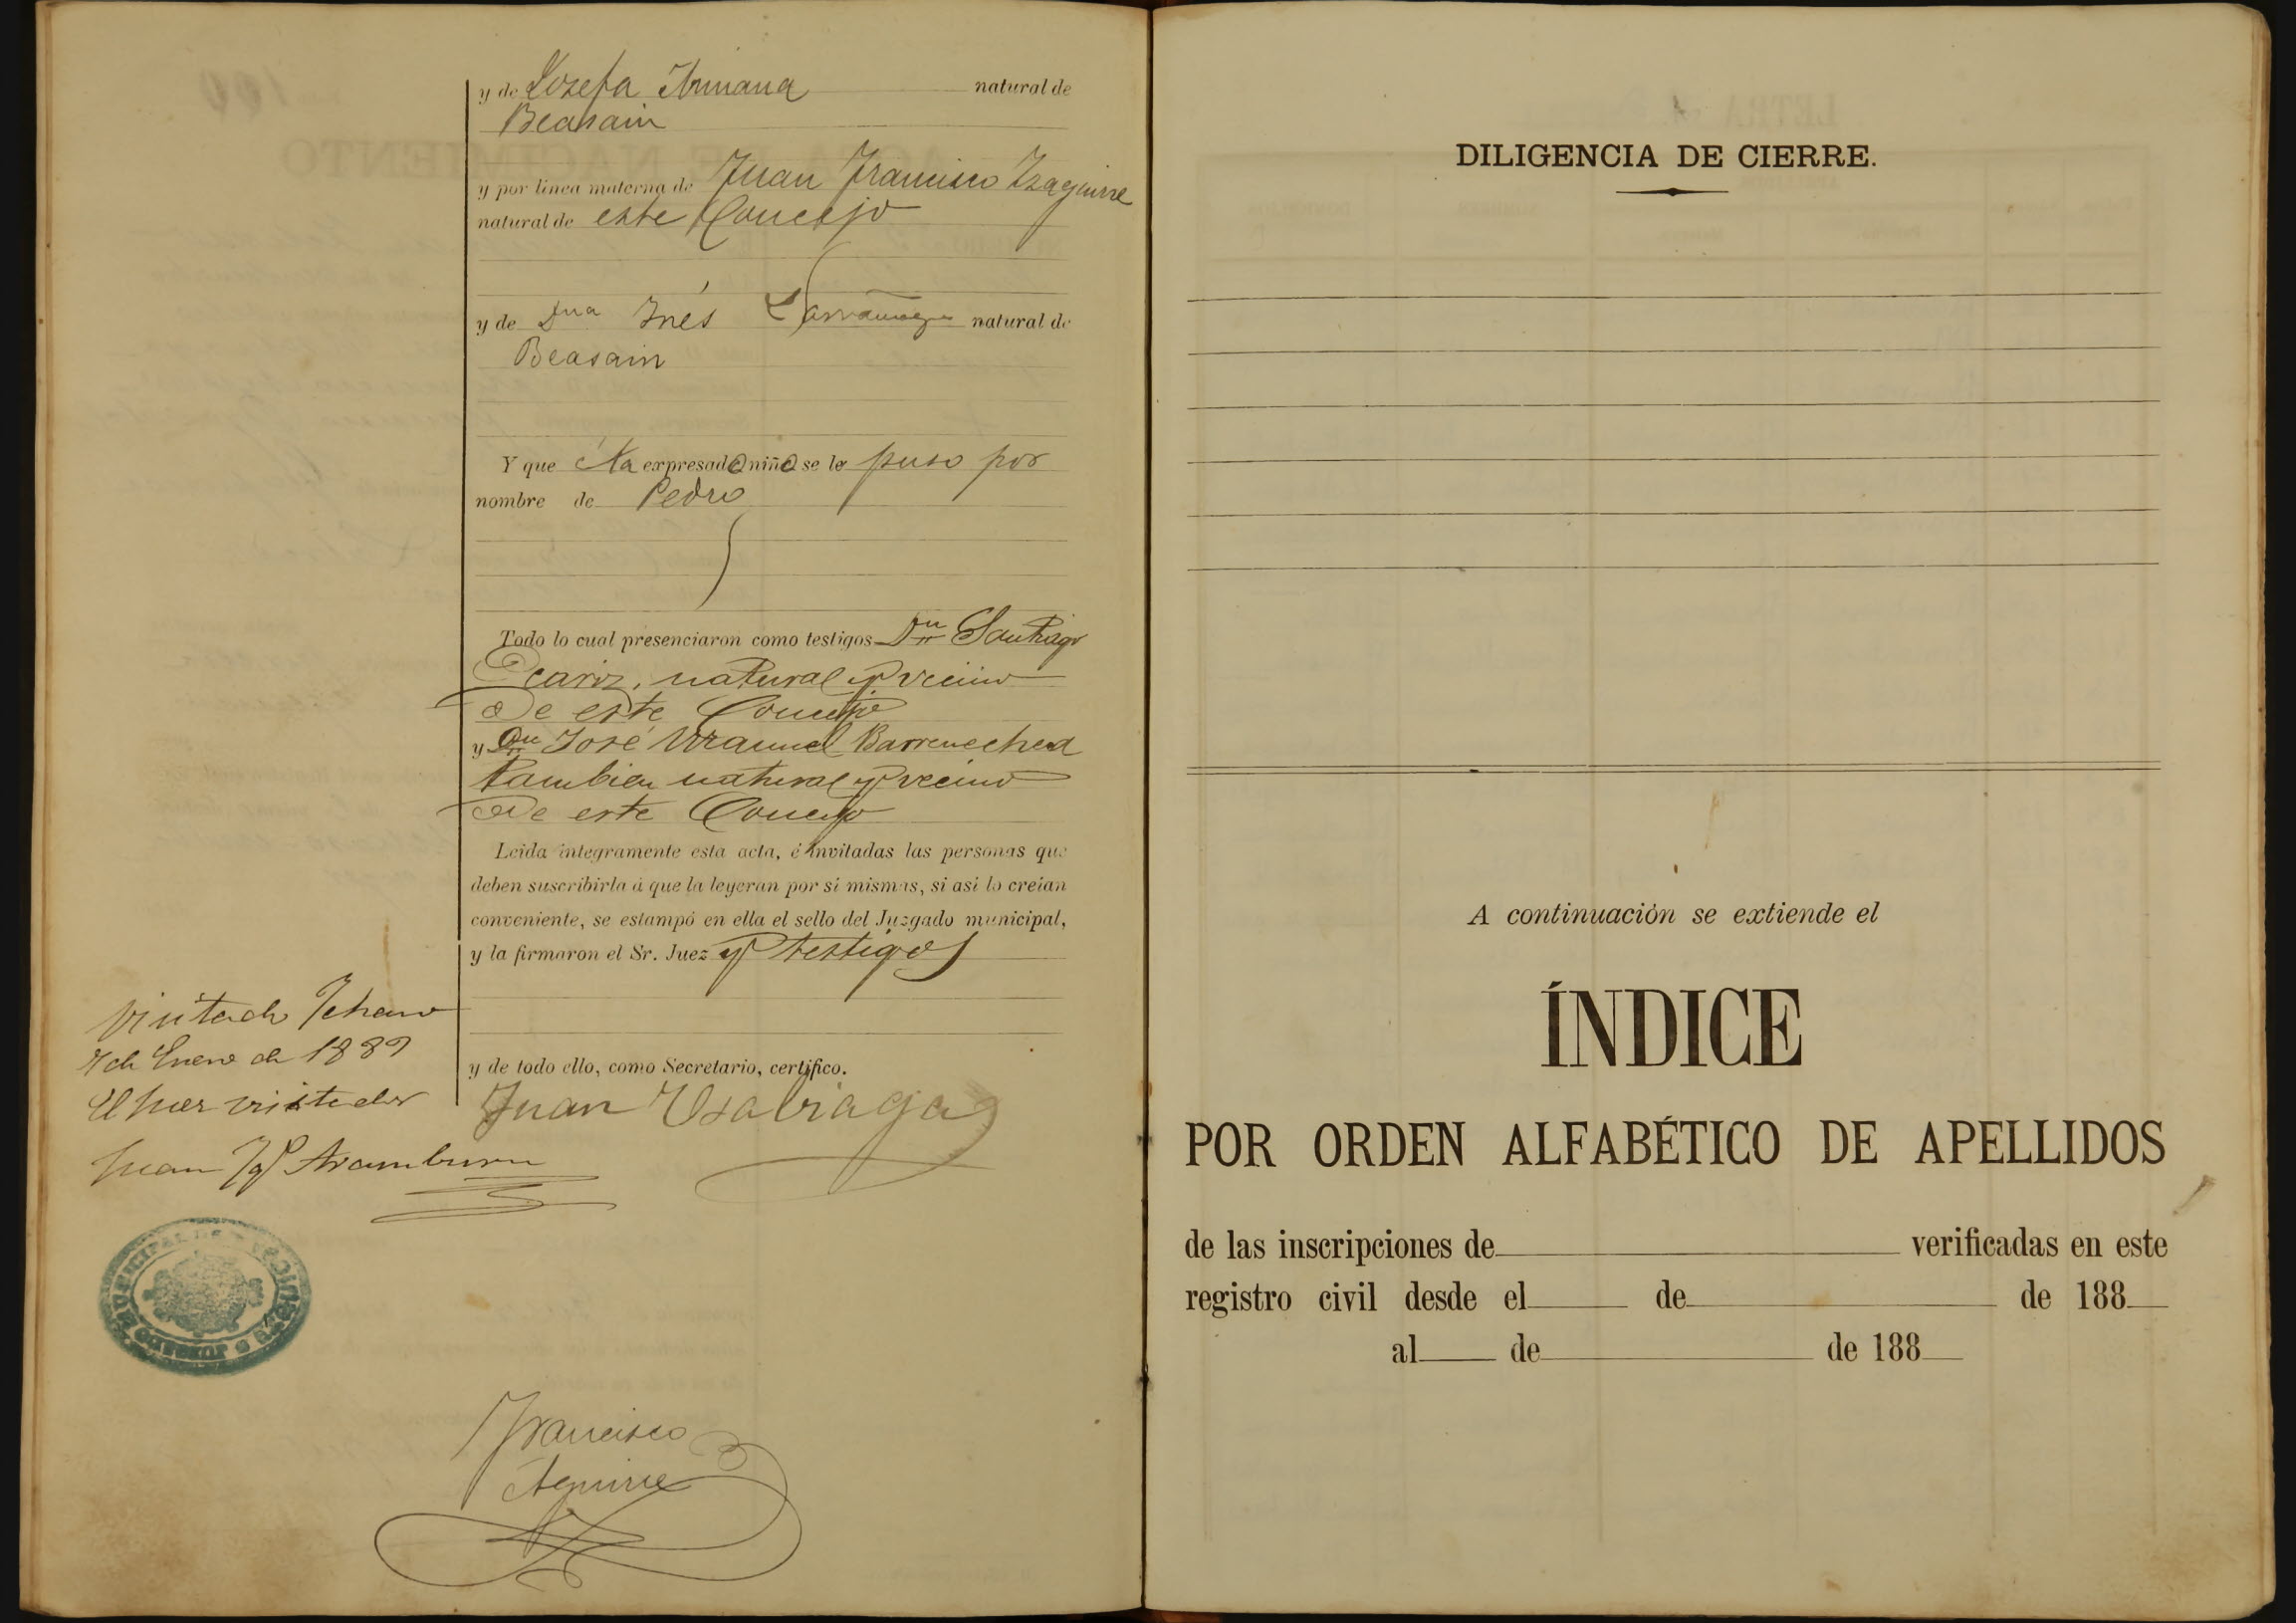 y de Josefa Aumana natural de
Beasain
y por línea materna de Juan Francisco Izaguirre
natural de este Concejo
y de Dna Inés Larrañaga natural de
Beasain
Y que expresado niño se le puso por
nombre de Pedro
Todo lo cual presenciaron como testigos Dn Santiago
natural y vecino
De este Concejo
y Dn José Manuel Barrenechea
tambien natural y vecino
De este Concejo
Leida íntegramente esta acta, é invitadas las personas que
deben suscribirla á que la leyeran por sí mismas, si así lo creían
conveniente, se estampó en ella el sello del Juzgado municipal,
y la firmaron el Sr. Juez y testigos
y de todo ello, como Secretario, certifico.
Juan Usabiaga
Visitado
7 de Enero de 1889
El Juez visitador
Juan Aramburu
Francisco
Aguirre
DILIGENCIA DE CIERRE.
A continuación se extiende el
ÍNDICE
POR ORDEN ALFABÉTICO DE APELLIDOS
de las inscripciones de verificadas en este
registro civil desde el de de 188
al de de 188